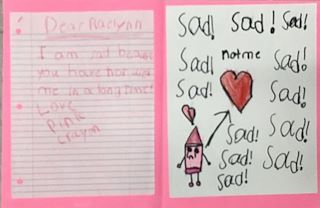 Dear Raelynn
I am sad because
you have not used
me in a long time!
Love
Pink
Crayon
Sad! Sad! Sad!
Sad! not me Sad!
Sad! Sad!
Sad! Sad!
Sad! Sad!
Sad!